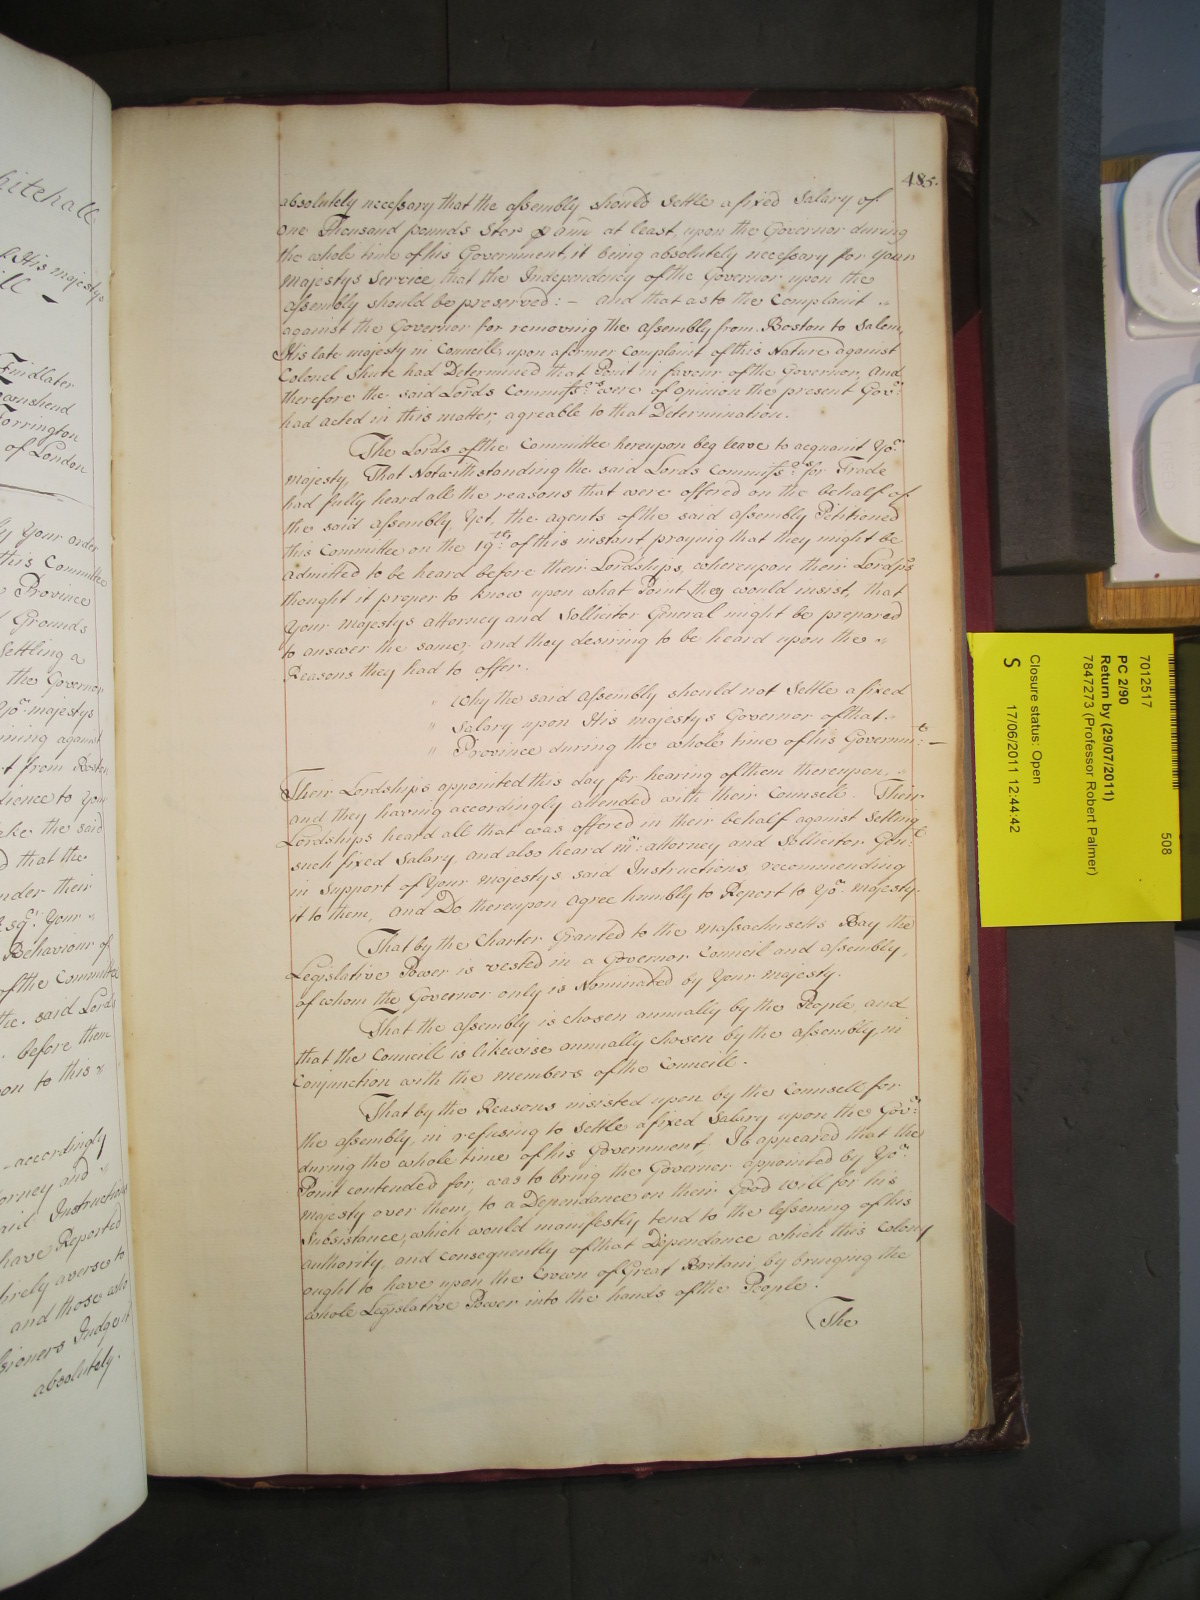 hitehall
His majestys
Findlater
ownshend
Torrington
of London
Your order
this Committee
Province
Grounds
Settling a
the Governor
Yo:r majestys
ning against
t from Boston
dience to You
ake the said
that the
nder their
Esq:r Your
Behaviour of
of the Committee
the said Lords
before them
on to this
accordingly
torney and
aid Instructions
have Reported
tirely averse to
and those who
sioners Judge it
absolutely.
485.
absolutely necessary that the assembly should Settle a fixed Salary of
one Thousand pounds Ster p ann at least, upon the Governor during
the whole time of his Government, it being absolutely necessary for Your
Majestys Service that the Independency of the Governor upon the
assembly should be preserved: – and that as to the Complaint
against the Governor for removing the assembly from Boston to Salem,
His late majesty in Councill, upon a former Complaint of this Nature against
Colonel Shute had Determined that Point in favour of the Governor, and
therefore the said Lords Commiss:rs were of opinion the present Gov:r
had acted in this matter, agreable to that Determination.
The Lords of the Committee hereupon beg leave to acquaint Yo:r
majesty, That Notwithstanding the said Lords Commiss:rs for Trade
had fully heard all the reasons that were offered on the behalf of
the said assembly, Yet, the agents of the said assembly Petitioned
this Committee on the 19:th of this instant praying that they might be
admitted to be heard before their Lordships, whereupon their Lordps
thought it proper to know upon what Point they would insist, that
Your Majestys attorney and Sollicitor General might be prepared
to answer the same; and they desiring to be heard upon the
Reasons they had to offer.
" Why the said assembly should not Settle a fixed
" Salary upon His majestys Governor of that
" Province during the whole time of his Governm:t –
Their Lordships appointed this day for hearing of them thereupon,
and they having accordingly attended with their Counsell. Their
Lordships heard all that was offered in their behalf against Setling
such fixed Salary, and also heard Mr: attorney and Sollicitor Gen:l
in Support of Your Majestys said Instructions, recommending
it to them, and Do thereupon agree humbly to Report to Yo:r Majesty.
That by the Charter Granted to the Massachusetts Bay the
Legislative Power is vested in a Governor Council and assembly,
of whom the Governor only is Nominated by Your Majesty.
That the assembly is chosen annually by the People, and
that the Councill is likewise annually chosen by the assembly, in
Conjunction with the members of the Councill.
That by the Reasons insisted upon by the Counsell for
the assembly, in refusing to Settle a fixed Salary upon the Gov:r
during the whole time of his Government, It appeared that the
Point contended for, was to bring the Governor appointed by Yo:r
Majesty over them, to a Dependance on their Good Will for his
Subsistance, which would manifestly tend to the lessening of his
authority, and consequently of that Dependance which this Colony
ought to have upon the Crown of Great Britain, by bringing the
whole Legislative Power into the hands of the People.
The
7012517
508
PC 2/90
Return by (29/07/2011)
7847273 (Professor Robert Palmer)
Closure status: Open
S 17/06/2011 12:44:42